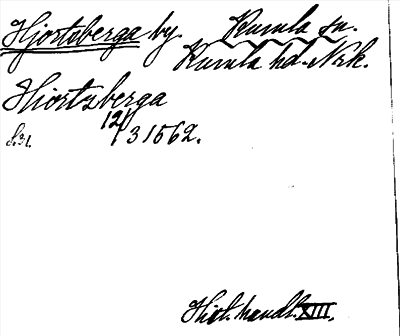 Hjortsberga by. Kumla sn.
Kumla hd. Nrk.
Hiortzberga
12/3 1562.
s. 31.
Hist. handl. XIII.